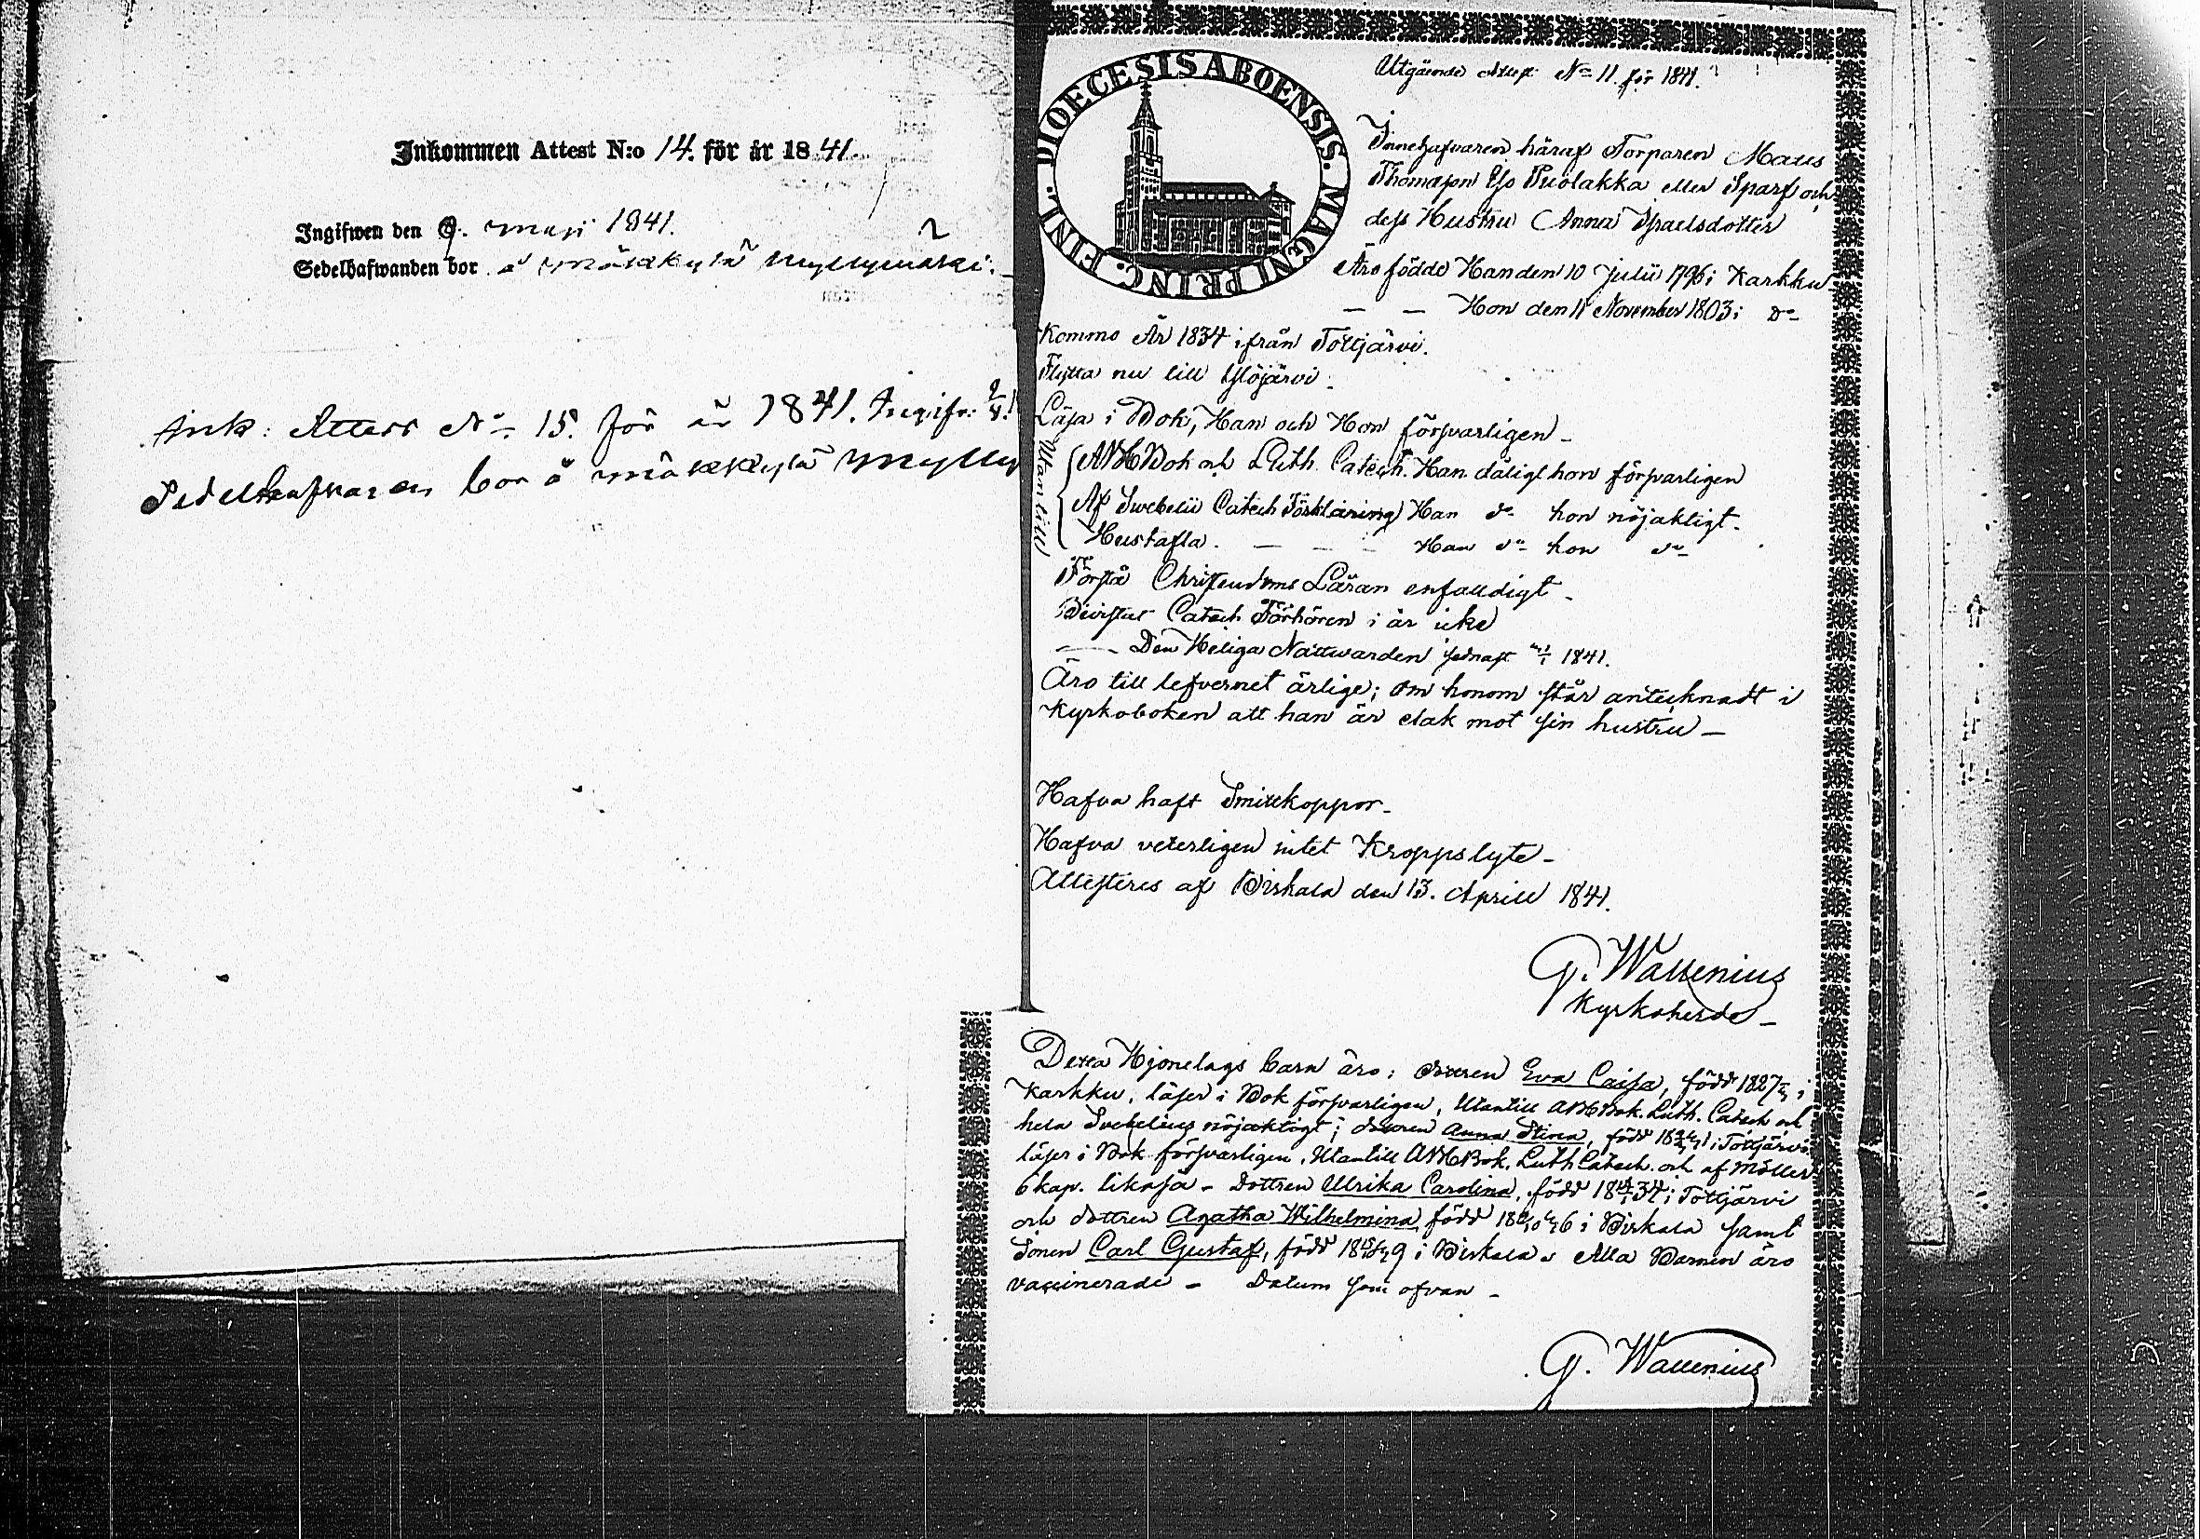 Inkommen Attest N:o 14. för år 1841.
Ingifwen den 9. maji 1841.
Sedelhafwanden bor å Mäkkylä Myllymäki.
Ink: Attest No 15. för år 1841. Ingifv:
Sedelhafvaren bor å Mäkkylä Mylly
DIOECESIS ABOENSIS. MAGNI PRINC. FINL.
Utgående Attest No 11. för 1841.
Innehafvaren häraf Torparen Matts
Thomasson Puolakka eller Sparf och
dess Hustru Anna Israelsdotter
Äro födde Han den 10 Julii 1796 i Karkku
— — Hon den 11 November 1803 i do
Komne År 1834 ifrån Tottjärvi.
Flytta nu till Ylöjärvi.
Läsa i Bok, Han och Hon försvarligen –
Utantill
ABCBok och Luth. Catech. Han dåligt hon försvarligen
Af Svebelii Catech Förklaring Han do hon nöjaktigt.
Hustafla. — — — Han do hon do
Förstå Christendoms Läran enfaldigt –
Bevistat Catech Förhören i år icke
—— Den Heliga Nattvarden sednast 1841.
Äro till lefvernet ärlige; om honom står antecknadt i
Kyrkoboken att han är elak mot sin hustru —
Hafva haft Smittkoppor –
Hafva veterligen intet Kroppslyte –
Attesteras af Birkala den 13. Aprill 1841.
G. Wallenius
Kyrkoherde –
Detta Hjonelags barn äro: dottren Eva Caisa, född 1827 i
Karkku, läser i Bok försvarligen, Utantill ABCBok. Luth. Catech och
hela Svebelius nöjaktigt; dottren Anna Stina, född i Tottjärvi
läser i Bok försvarligen. Utantill ABCBok, Luth Catech. och af Möller
6 kap. likaså – Dottren Ulrika Carolina, född i Tottjärvi
och dottren Agatha Wilhelmina född i Birkala samt
Sonen Carl Gustaf, född i Birkala. Alla Barnen äro
vaccinerade – Datum som ofvan –
G. Wallenius